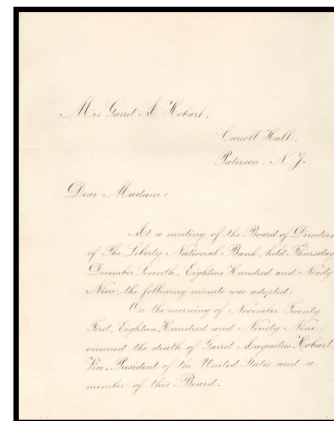 Mrs Garret A. Hobart,
Carroll Hall,
Paterson, N. J.
Dear Madam:
At a meeting of the Board of Directors
of The Liberty National Bank, held Thursday
December Seventh, Eighteen Hundred and Ninety
Nine, the following minute was adopted:
On the morning of November Twenty
First, Eighteen Hundred and Ninety Nine,
occurred the death of Garret Augustus Hobart
Vice-President of the United States and a
member of this Board.